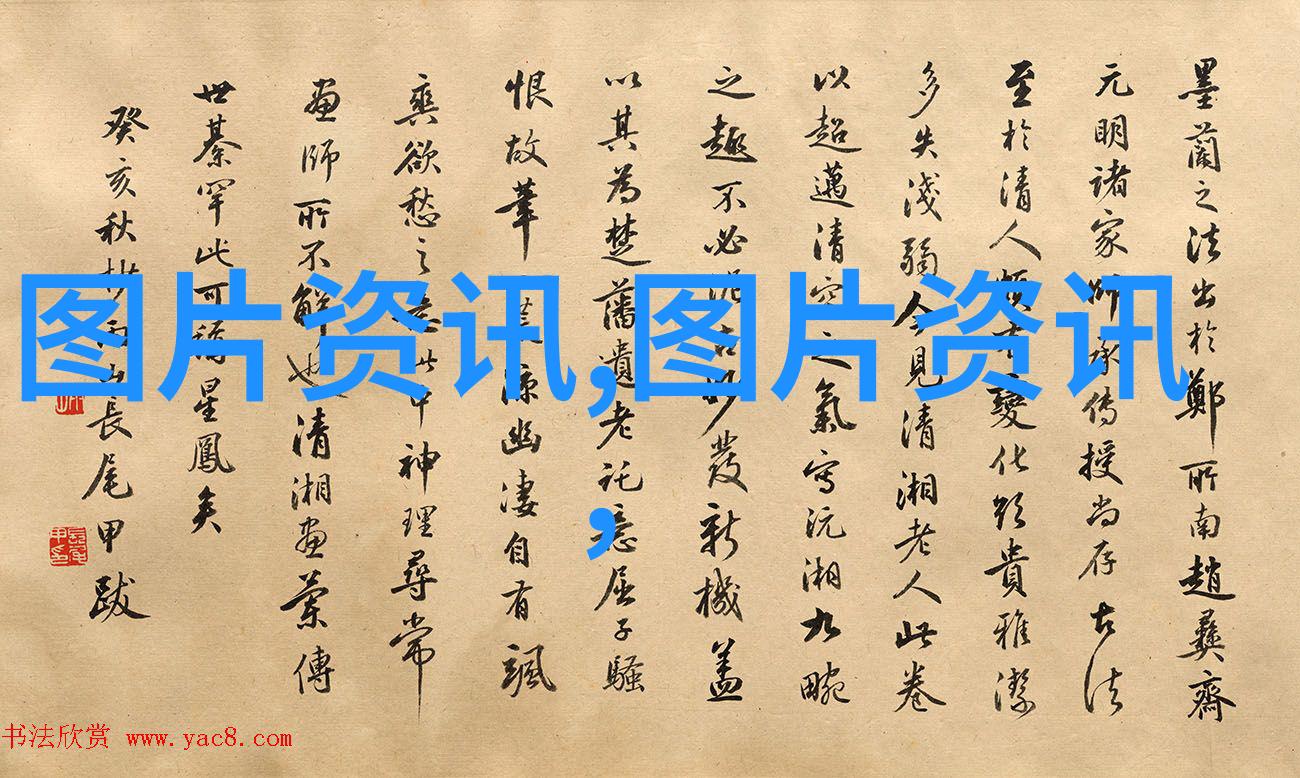 墨蘭之法出於鄭所南趙彝齋
元明諸家師承傳授尚存古法
至於清人變化貴雅潔
多失淺弱今見清湘老人此卷
以超邁清空之氣寫沅湘九畹
之趣不必泥古妙發新機蓋
以其為楚藩遺老託意屈子騷
恨故筆幽凄自有颯
爽欲愁之意此中神理尋常
畫師所不解也清湘畫蘭傳
世綦罕此可稱星鳳矣
癸亥秋杪雨山長尾甲跋
图片资讯,图片资讯
,
书法欣赏 www.yac8.com